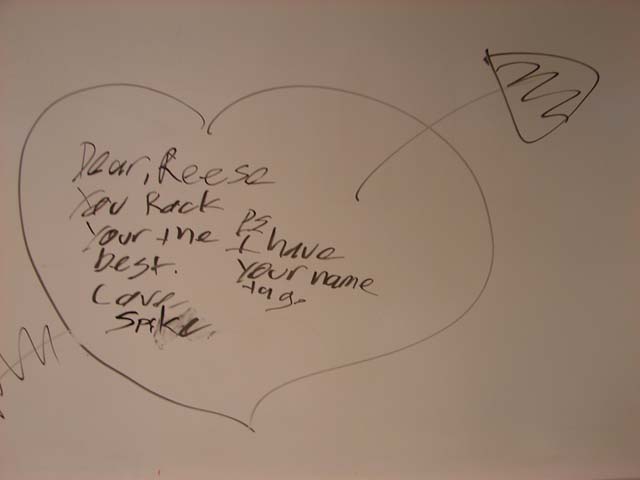 Dear, Reese
You Rock
Your the
best.
Love,
Spike.
PS
I have
Your name
tag.